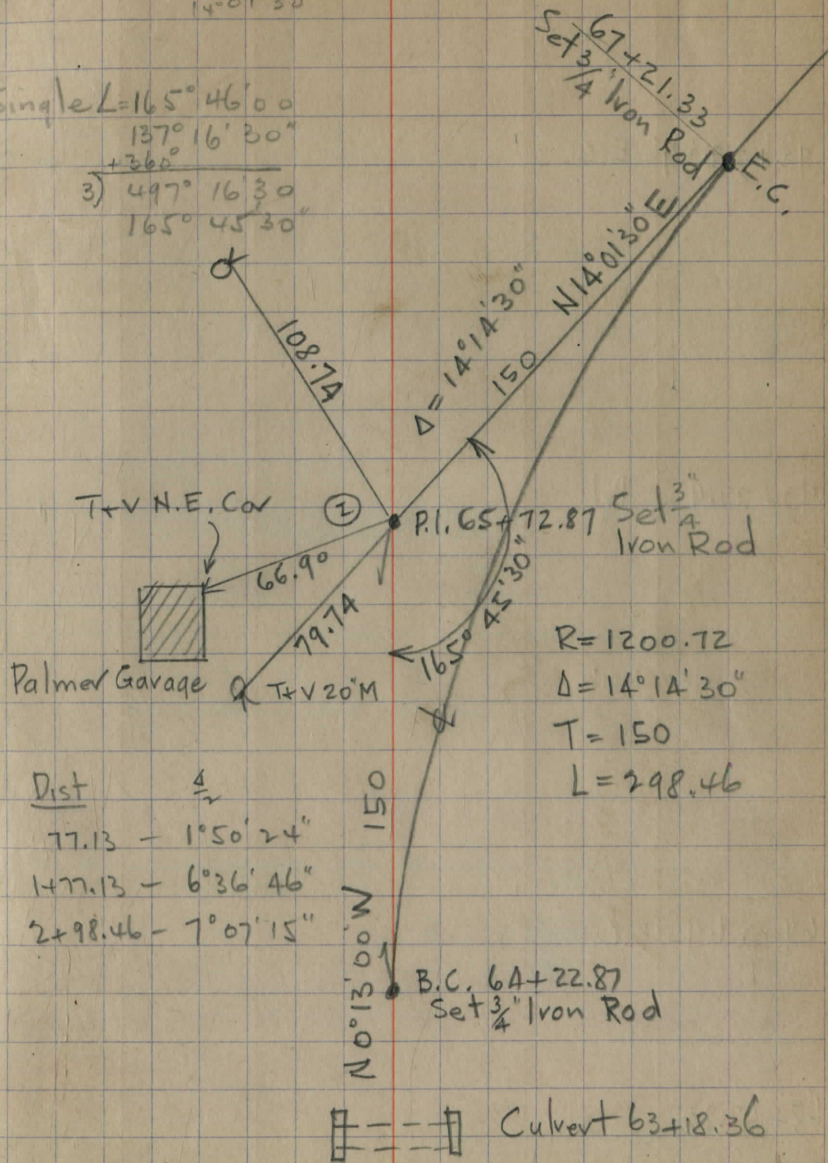 14°01'30
Single L=165°46'00
137°16'30"
+360°
3) 497°16'30
165°45'30"
67+21.33
Set 3/4" Iron Rod
E.C.
N14°01'30"E
108.74
Δ=14°14'30"
150
T+V N.E. Cor
1
P.I. 65+72.87
Set 3/4"
Iron Rod
66.90
79.74
165°45'30"
Palmer Garage
T+V 20"M
R=1200.72
Δ=14°14'30"
T=150
L=298.46
Dist Δ/2
77.13 - 1°50'24"
1+77.13 - 6°36'46"
2+98.46 - 7°07'15"
150
N0°13'00"W
B.C. 64+22.87
Set 3/4" Iron Rod
Culvert 63+18.36